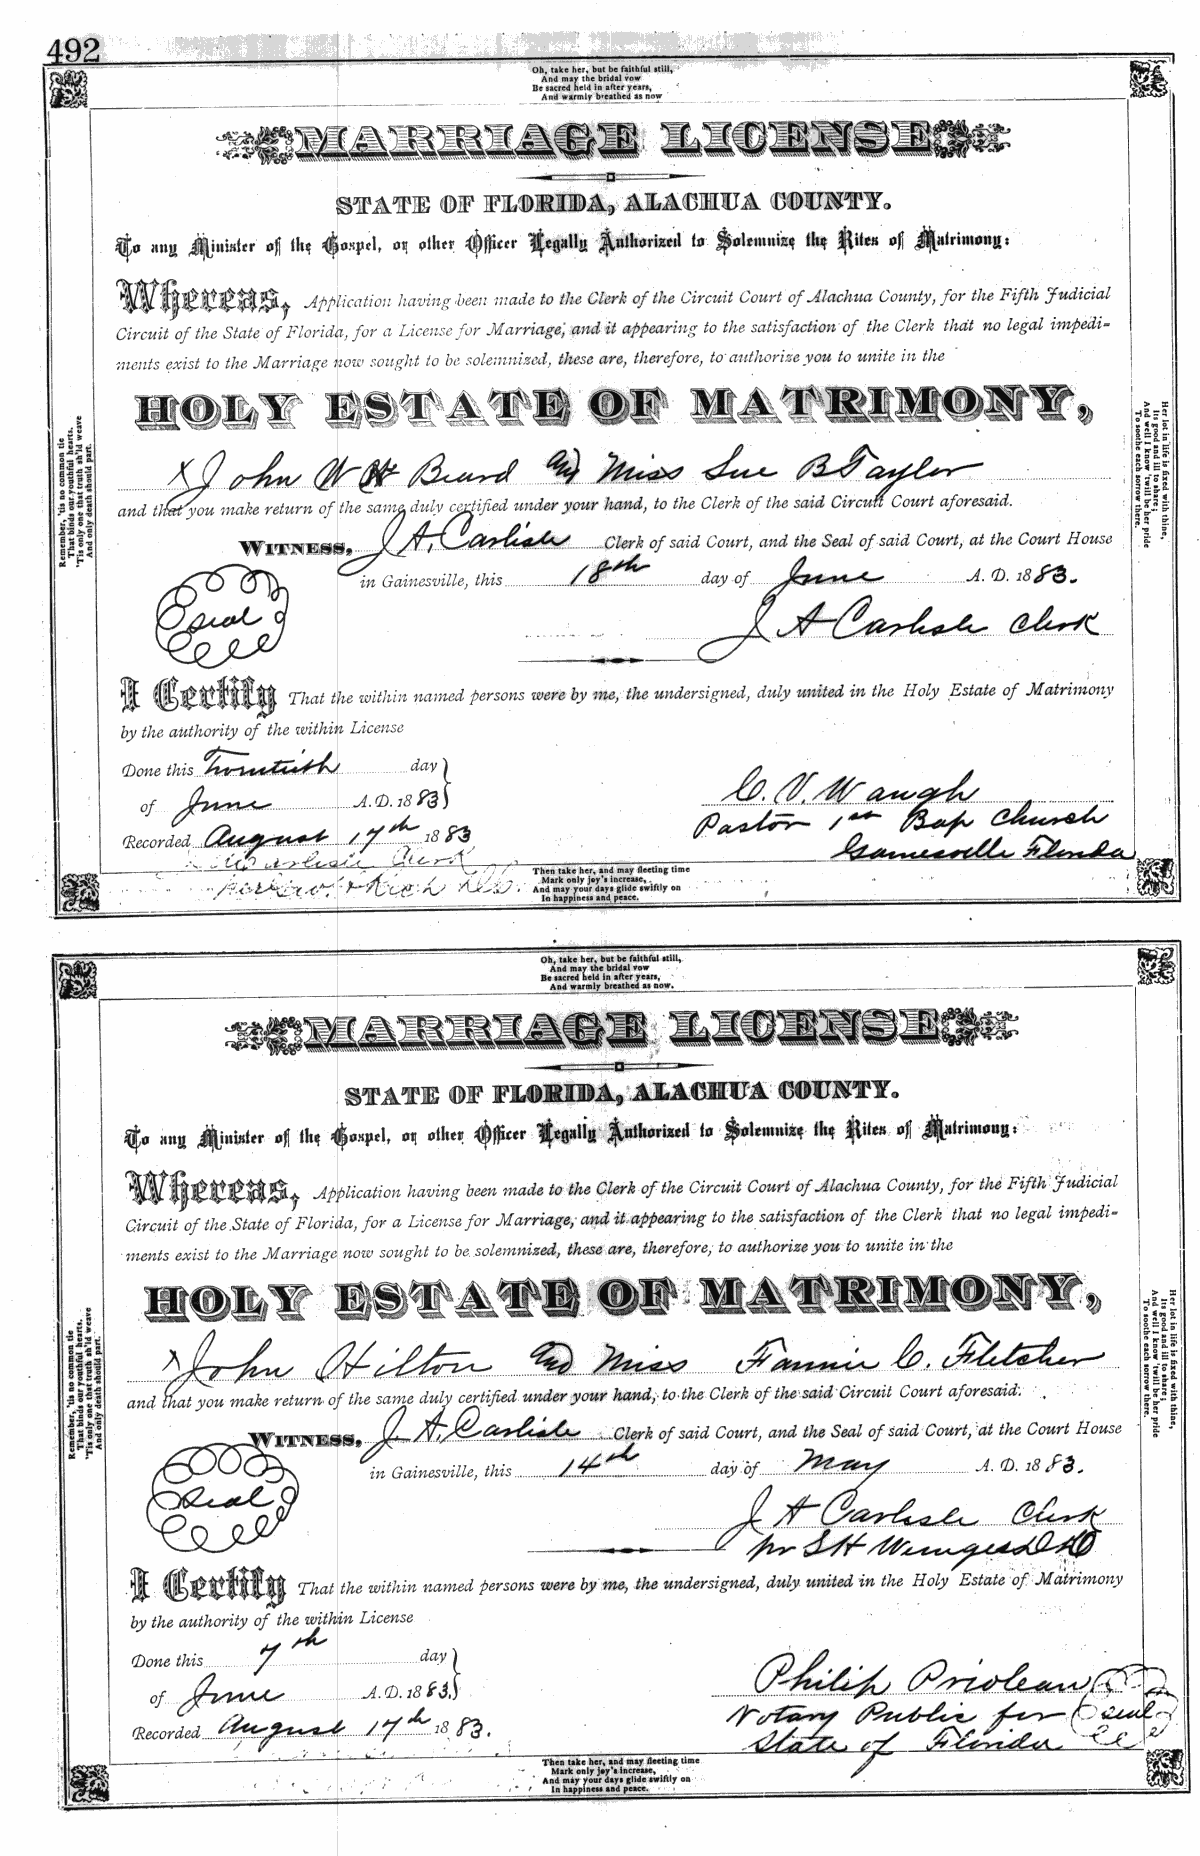 492
Oh, take her, but be faithful still,
And may the bridal vow
Be sacred held in after years,
And warmly breathed as now
MARRIAGE LICENSE
STATE OF FLORIDA, ALACHUA COUNTY.
To any Minister of the Gospel, or other Officer Legally Authorized to Solemnize the Rites of Matrimony:
Whereas, Application having been made to the Clerk of the Circuit Court of Alachua County, for the Fifth Judicial
Circuit of the State of Florida, for a License for Marriage, and it appearing to the satisfaction of the Clerk that no legal impedi-
ments exist to the Marriage now sought to be solemnized, these are, therefore, to authorize you to unite in the
HOLY ESTATE OF MATRIMONY,
x John W H Beard and Miss Sue B Taylor
and that you make return of the same duly certified under your hand, to the Clerk of the said Circuit Court aforesaid.
WITNESS, J A. Carlisle Clerk of said Court, and the Seal of said Court, at the Court House
in Gainesville, this 18th day of June A. D. 1883.
Seal
J A Carlisle Clerk
I Certify That the within named persons were by me, the undersigned, duly united in the Holy Estate of Matrimony
by the authority of the within License
Done this Twentieth day
of June A.D. 1883
Recorded August 17th 1883
C. V. Waugh
Pastor 1st Bap Church
Gainesville Florida
Carlisle Clerk
Remember, 'tis no common tie
That binds our youthful hearts,
'Tis only one that truth sh'ld weave
And only death should part.
Her lot in life is fixed with thine,
Its good and ill to share;
And well I know 'twill be her pride
To soothe each sorrow there.
Then take her, and may fleeting time
Mark only joy's increase,
And may your days glide swiftly on
In happiness and peace.
Oh, take her, but be faithful still,
And may the bridal vow
Be sacred held in after years,
And warmly breathed as now.
MARRIAGE LICENSE
STATE OF FLORIDA, ALACHUA COUNTY.
To any Minister of the Gospel, or other Officer Legally Authorized to Solemnize the Rites of Matrimony:
Whereas, Application having been made to the Clerk of the Circuit Court of Alachua County, for the Fifth Judicial
Circuit of the State of Florida, for a License for Marriage, and it appearing to the satisfaction of the Clerk that no legal impedi-
ments exist to the Marriage now sought to be solemnized, these are, therefore, to authorize you to unite in the
HOLY ESTATE OF MATRIMONY,
x John Hilton and Miss Fannie C. Fletcher
and that you make return of the same duly certified under your hand, to the Clerk of the said Circuit Court aforesaid.
WITNESS, J. A. Carlisle Clerk of said Court, and the Seal of said Court, at the Court House
in Gainesville, this 14th day of May A. D. 1883.
Seal
J A Carlisle Clerk
pr S H Wienges D C
I Certify That the within named persons were by me, the undersigned, duly united in the Holy Estate of Matrimony
by the authority of the within License
Done this 7th day
of June A.D. 1883.
Recorded August 17th 1883.
Philip Prioleau
Notary Public for
State of Florida
Seal
Remember, 'tis no common tie
That binds our youthful hearts.
'Tis only one that truth sh'ld weave
And only death should part.
Her lot in life is fixed with thine,
Its good and ill to share;
And well I know 'twill be her pride
To soothe each sorrow there.
Then take her, and may fleeting time
Mark only joy's increase,
And may your days glide swiftly on
In happiness and peace.